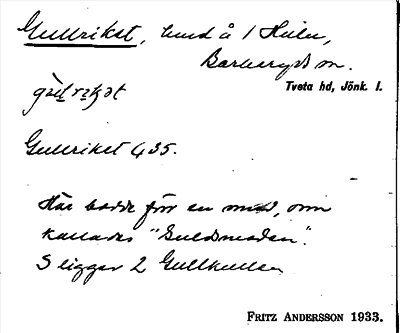 Gullriket, hund å 1 Hulu,
Barkeryds sn.
Tveta hd, Jönk. l.
Gullriket 435.
Här bodde för en man, som
kallades "Guldsmeden".
S ligger 2 Gullkullen
FRITZ ANDERSSON 1933.